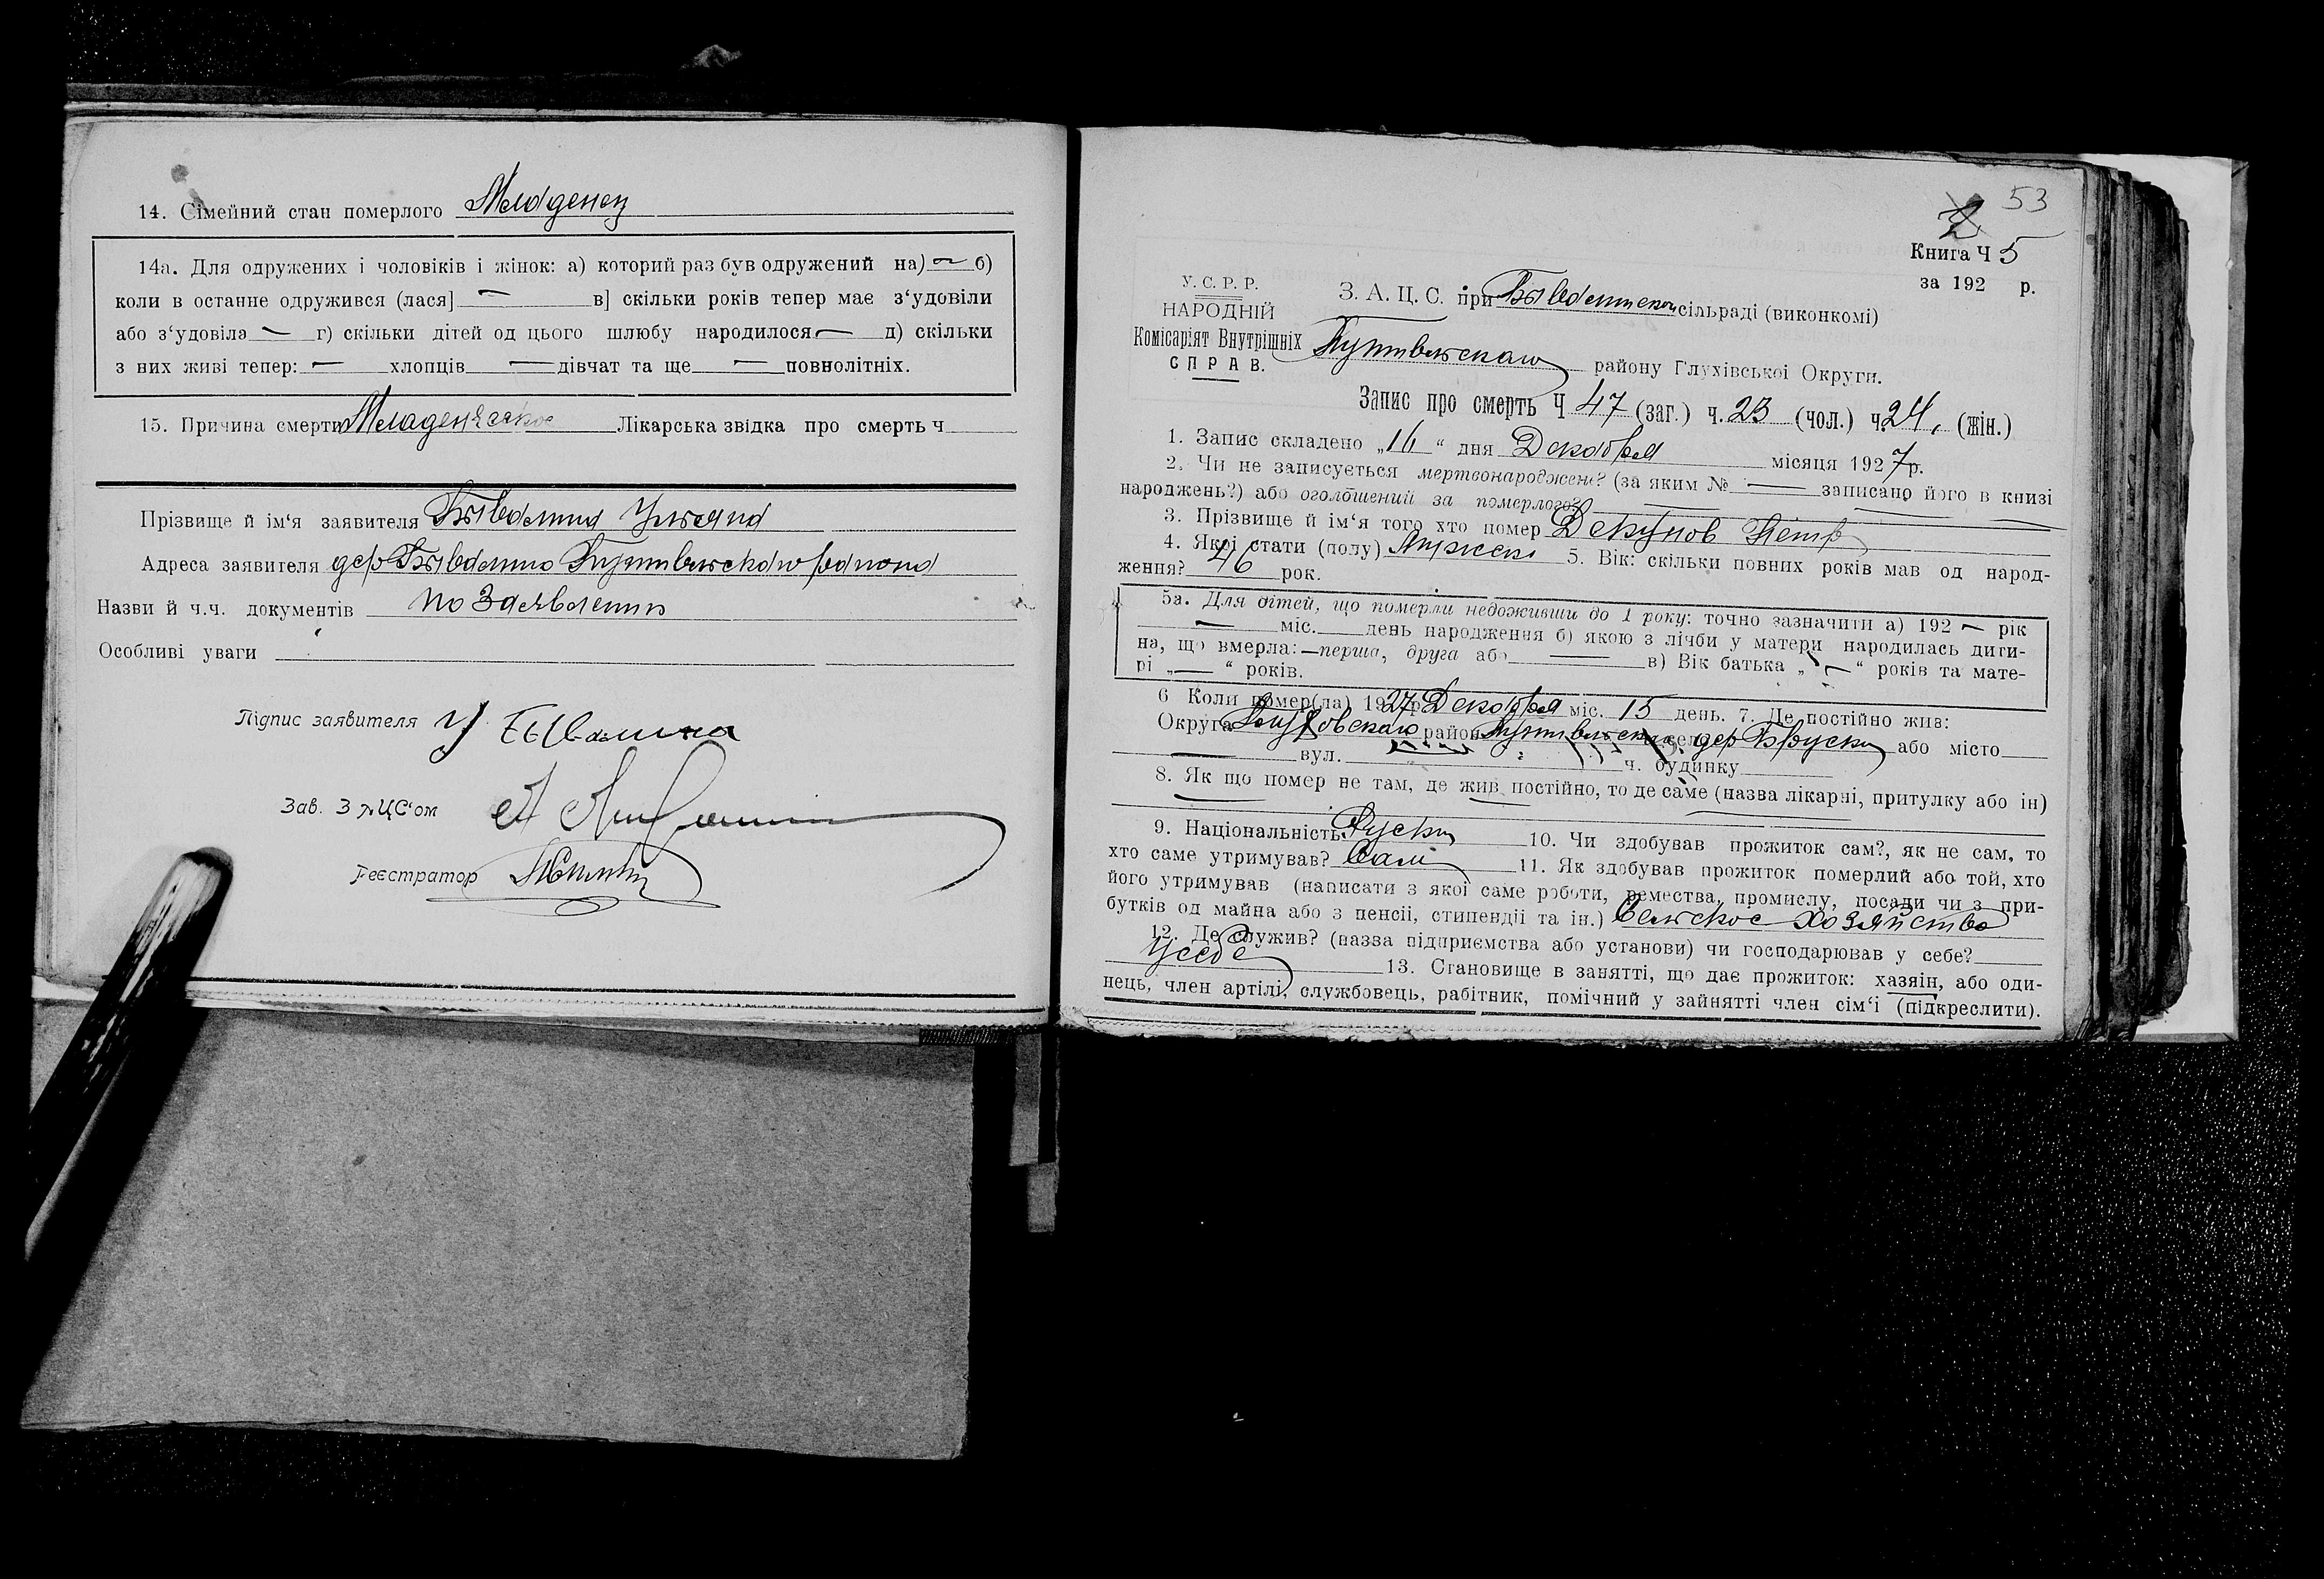 14. Сімейний стан померлого Младенец
14а. Для одружених і чоловіків і жінок: а) которий раз був одружений на) — б)
коли в останне одружився (лася] — в] скільки років тепер має з‘удовіли
або з‘удовіла — г) скільки дітей од цього шлюбу народилося — д) скільки
з них живі тепер: — хлопців — дівчат та ще — повнолітніх.
15. Причина смерти Младенческое Лікарська звідка про смерть ч
Прізвище й ім‘я заявителя Бывалина Ульяна
Адреса заявителя дер Бывалино Путивльского района
Назви й ч.ч. документів по Заявлению
Особливі уваги
Підпис заявителя У Бывалина
Зав. ЗАЦС‘ом
Реєстратор
53
2
Книга Ч 5
за 192 р.
У.С.Р.Р.
НАРОДНІЙ
Комісаріят Внутрішніх
СПРАВ.
З. А. Ц. С. при сільраді (виконкомі)
Путивльского району Глухівської Округи.
Запис про смерть Ч 47 (заг.) ч. 23 (чол.) ч. 24, (жін.)
1. Запис складено „16“ дня Декабря місяця 1927 р.
2. Чи не записується мертвонароджене? (за яким № — записано його в книзі
народжень?) або оголошений за померлого? —
3. Прізвище й ім‘я того хто помер Декунов Петр
4. Якої стати (полу) Мужеск 5. Вік: скільки повних років мав од народ-
ження? 46 рок.
5а. Для дітей, що померли недоживши до 1 року: точно зазначити а) 192 — рік
— міс. день народження б) якою з лічби у матери народилась дити-
на, що вмерла: — перша, друга або — в) Вік батька „—“ років та мате-
рі „—“ років.
6 Коли помер(ла) 1927 р Декабря міс. 15 день. 7. Де постійно жив:
Округа Глуховского район Путивльск село дер Бруски або місто
вул. ч. будинку
8. Як що помер не там, де жив постійно, то де саме (назва лікарні, притулку або ін)
9. Національність Руский 10. Чи здобував прожиток сам?, як не сам, то
хто саме утримував? Сам 11. Як здобував прожиток померлий або той, хто
його утримував (написати з якої саме роботи, ремества, промислу, посади чи з при-
бутків од майна або з пенсії, стипендії та ін.) Сельское хозяйство
12. Де служив? (назва підприємства або установи) чи господарював у себе?
У себе 13. Становище в занятті, що дає прожиток: хазяїн, або оди-
нець, член артілі, службовець, рабітник, помічний у зайнятті член сім‘ї (підкреслити).